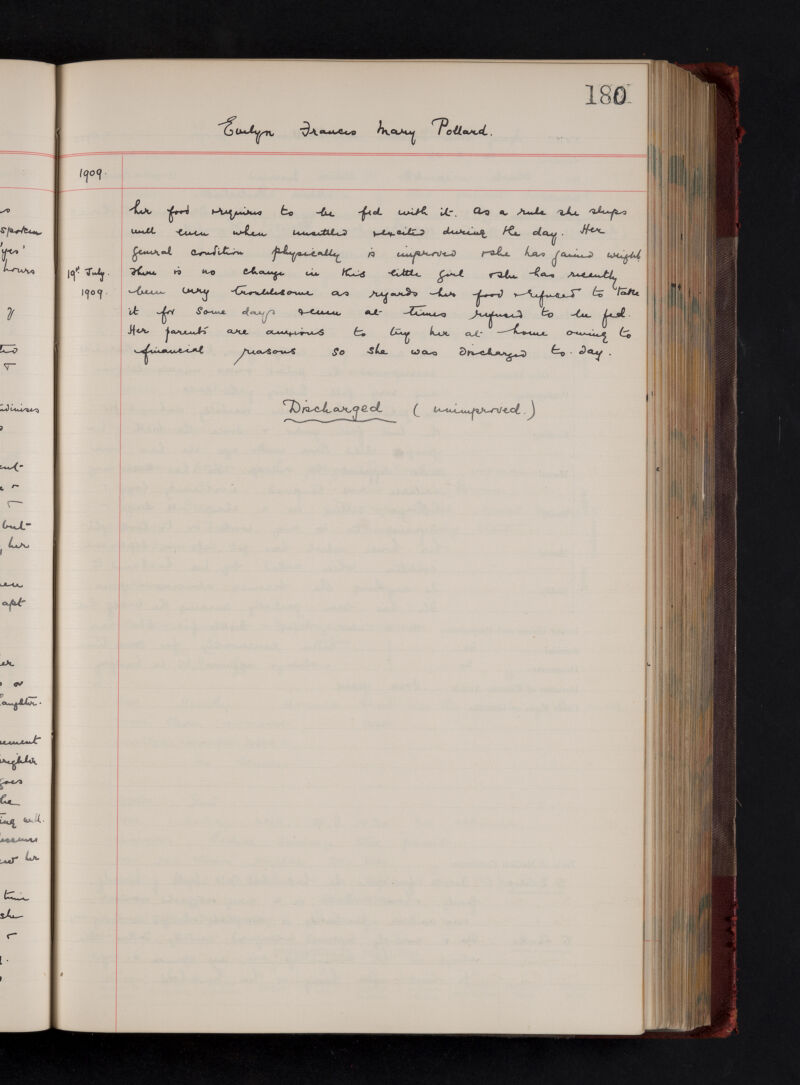 180
Evelyn Frances Mary Pollard.
1909.
her food requires to be fed with it. As a rule she sleeps
well even when unsettled & excited during the day. Her
general condition physically is improved & she has gained weight
19th July 1909. There is no change in this little girl & she has recently
been very troublesome as regards her food & refused to take
it for some days & even at times refused to be fed.
Her parents are anxious to try her at home owing to
financial reasons so she was discharged to-day.
Discharged (unimproved.)
spoken
'yes'
hours
but
her
apt
er
or
daughter.
goes
he
her
time
she